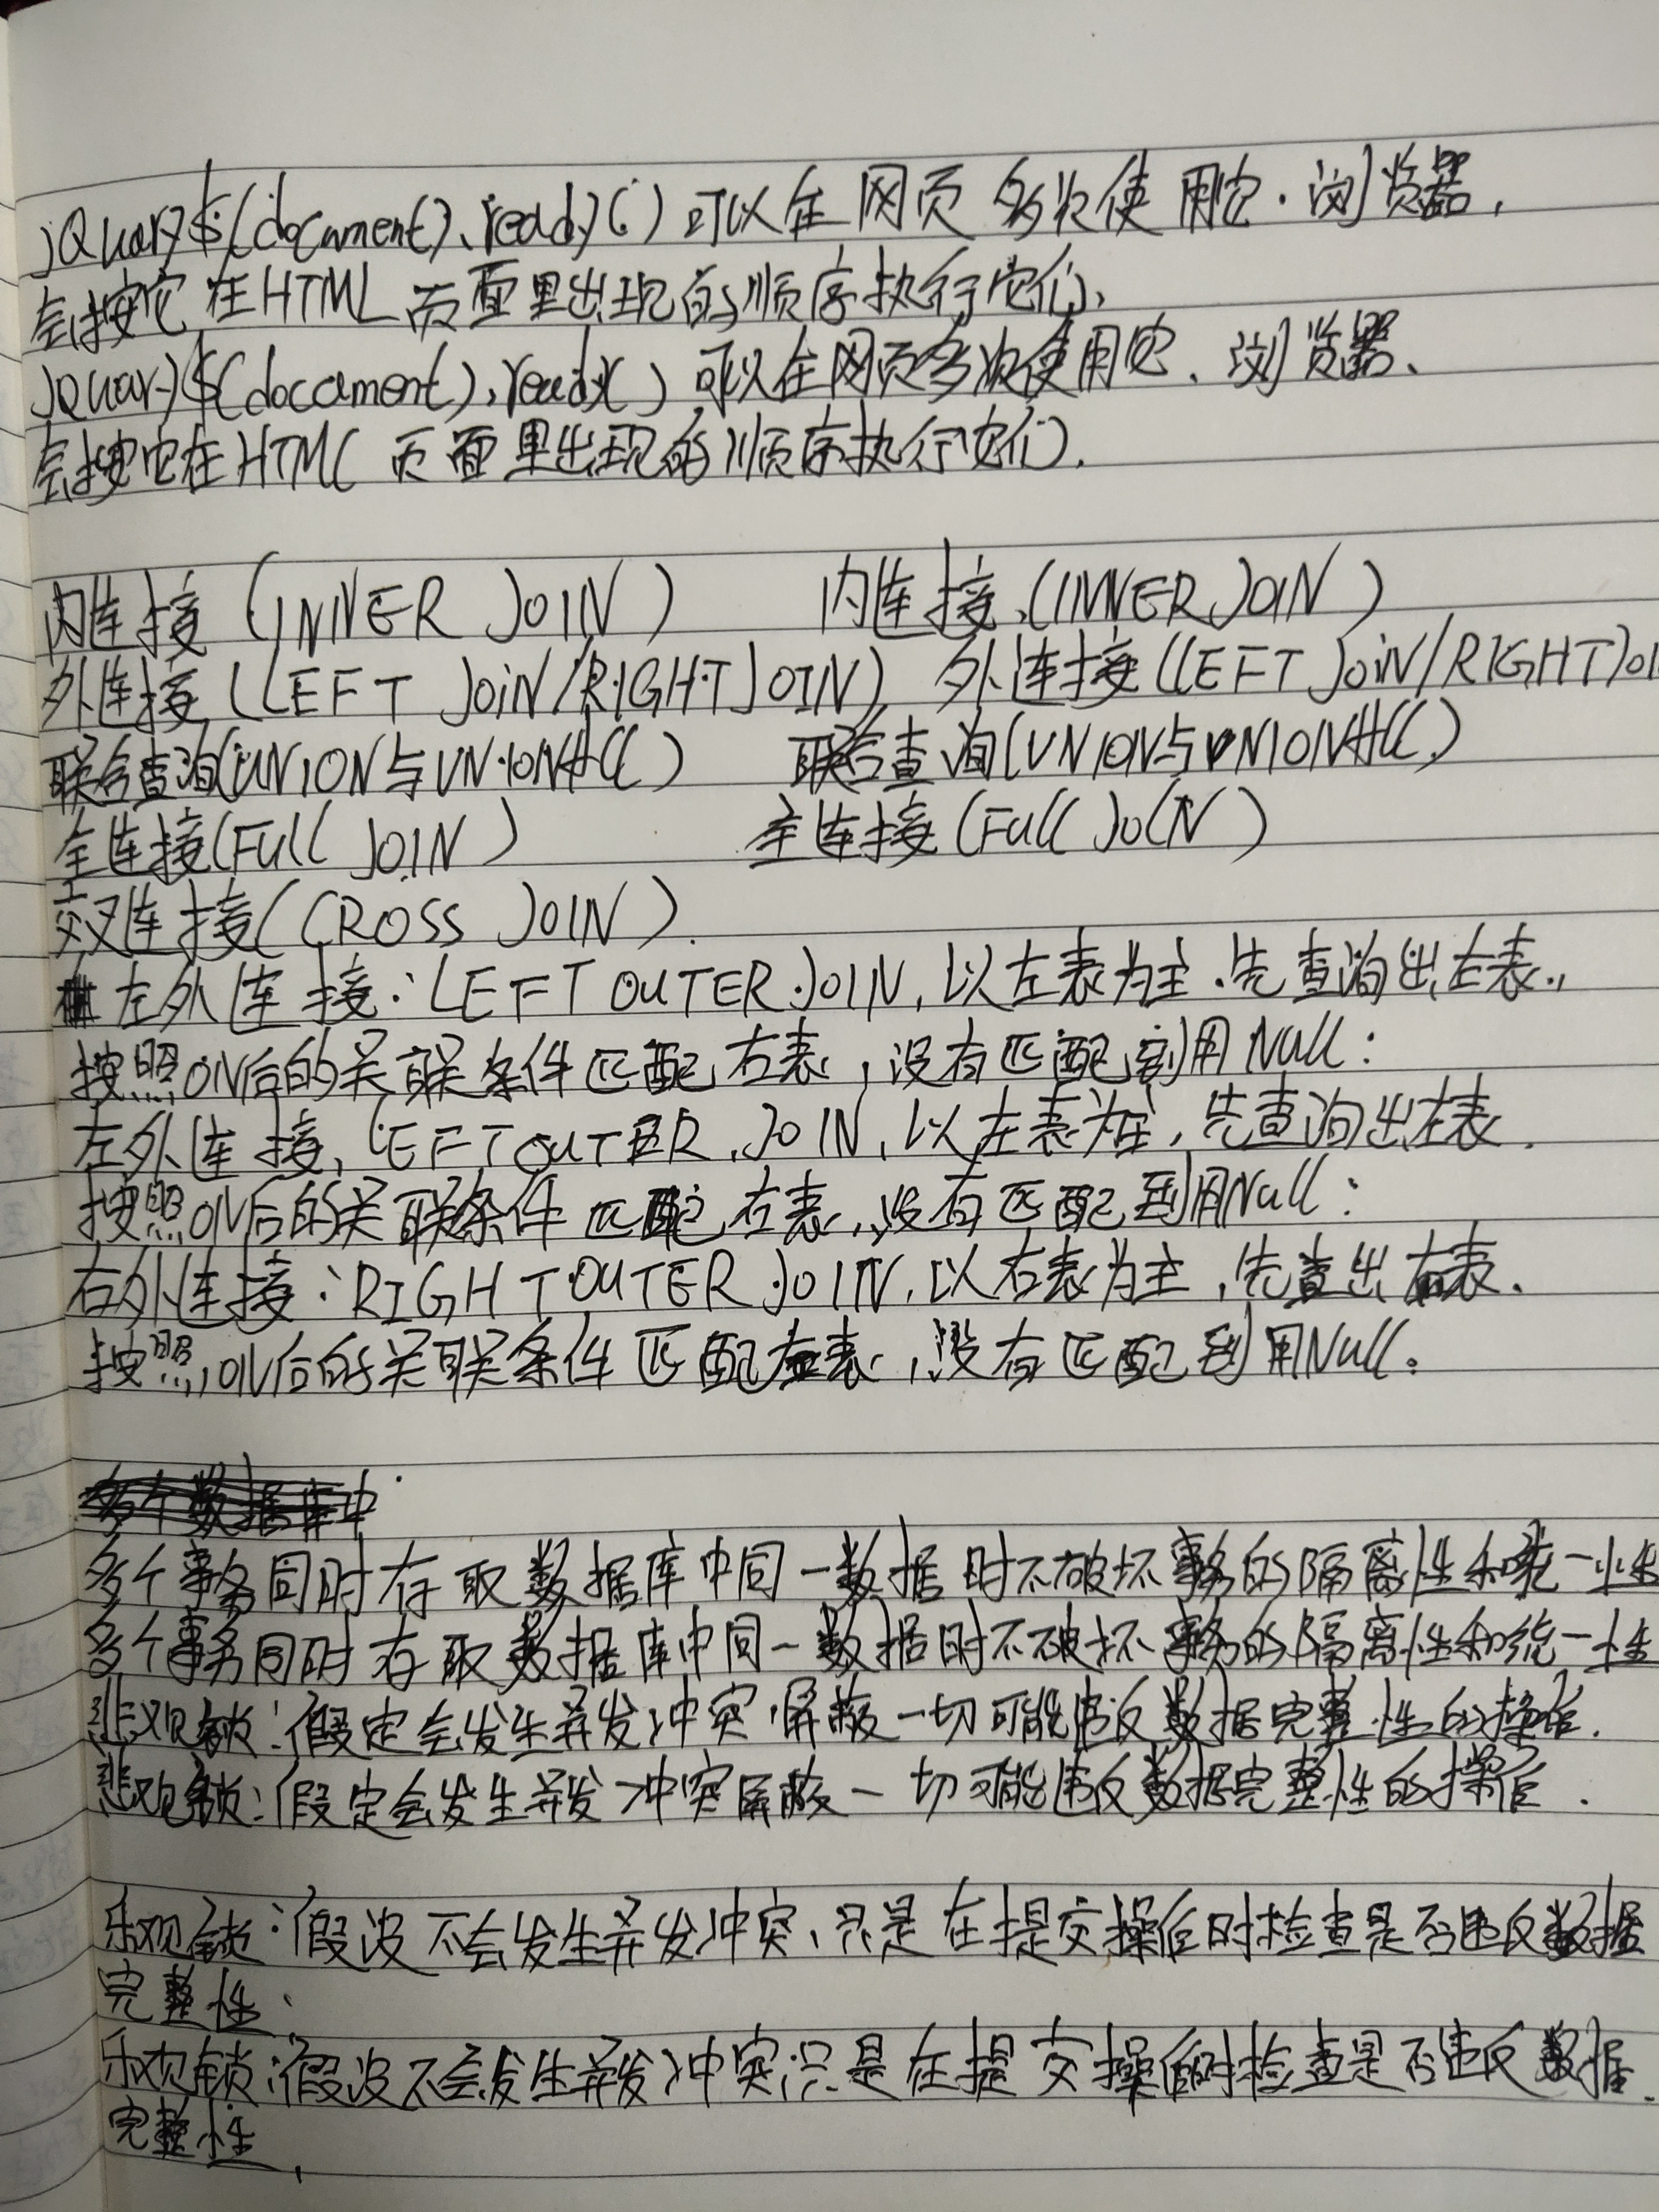 jQuary$(document).ready()可以在网页多次使用它.浏览器,
会按它在HTML页面里出现的顺序执行它们、
jQuary$(document).ready()可以在网页多次使用它、浏览器、
会按它在HTML页面里出现的顺序执行它们.
内连接(INNER JOIN) 内连接(INNER JOIN)
外连接(LEFT JOIN/RIGHT JOIN) 外连接(LEFT JOIN/RIGHT JOI
联合查询(UNION与UNIONAll) 联合查询(UNION与UNIONAll)
全连接(Full JOIN) 全连接(Full JOIN)
交叉连接(CROSS JOIN).
左外连接:LEFT OUTER JOIN,以左表为主.先查询出左表.,
按照ON后的关联条件匹配右表,没有匹配到用Null:
左外连接,LEFT OUTER JOIN,以左表为主,先查询出左表.
按照ON后的关联条件匹配右表,没有匹配到用Null:
右外连接:RIGHT OUTER JOIN,以右表为主,先查出右表.
按照,ON后的关联条件匹配左表,没有匹配到用Null。
多个数据库中
多个事务同时存取数据库中同一数据时不破坏事务的隔离性和统一性
多个事务同时存取数据库中同一数据时不破坏事务的隔离性和统一性
悲观锁:假定会发生并发冲突屏蔽一切可能违反数据完整性的操作.
悲观锁:假定会发生并发冲突屏蔽一切可能违反数据完整性的操作.
乐观锁:假设不会发生并发冲突、只是在提交操作时检查是否违反数据
完整性、
乐观锁:假设不会发生并发冲突只是在提交操作时检查是否违反数据.
完整性,